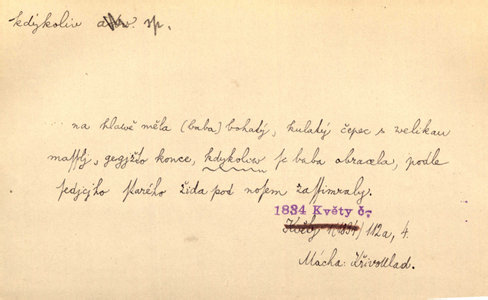 kdykoliv sp.
na hlawě měla (baba) bohatý, kulatý čepec s welikau
mašlj, gegjžto konce, kdykoliw se baba obracela, podle
sedjcjho starého žida pod nosem zašimraly.
1834 Květy č.
Květy 1(1834) 112a, 4.
Mácha: Křivoklad.